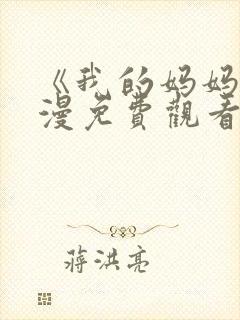 《我的妈妈
漫免费觀看
蔣洪亮